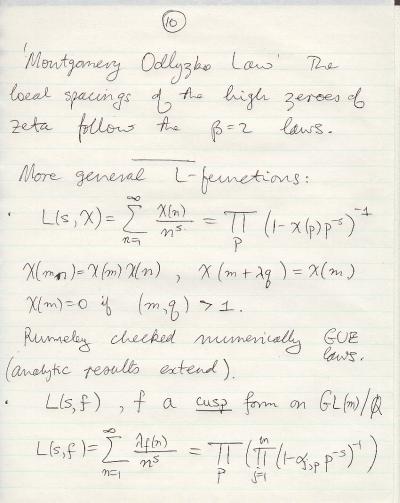 10
'Montgomery Odlyzko Law' The
local spacings of the high zeroes of
zeta follow the β=2 laws.
More general L-functions:
· L(s,χ)= ∑_{n=1}^{∞} χ(n)/n^s = ∏_p (1-χ(p)p^{-s})^{-1}
χ(mn)=χ(m)χ(n) , χ(m+λq)=χ(m)
χ(m)=0 if (m,q)>1.
Rumeley checked numerically GUE
laws.
(analytic results extend).
· L(s,f) , f a cusp form on GL(m)/Q
L(s,f)= ∑_{n=1}^{∞} λf(n)/n^s = ∏_p (∏_{j=1}^{m} (1-α_{j,p} p^{-s})^{-1})